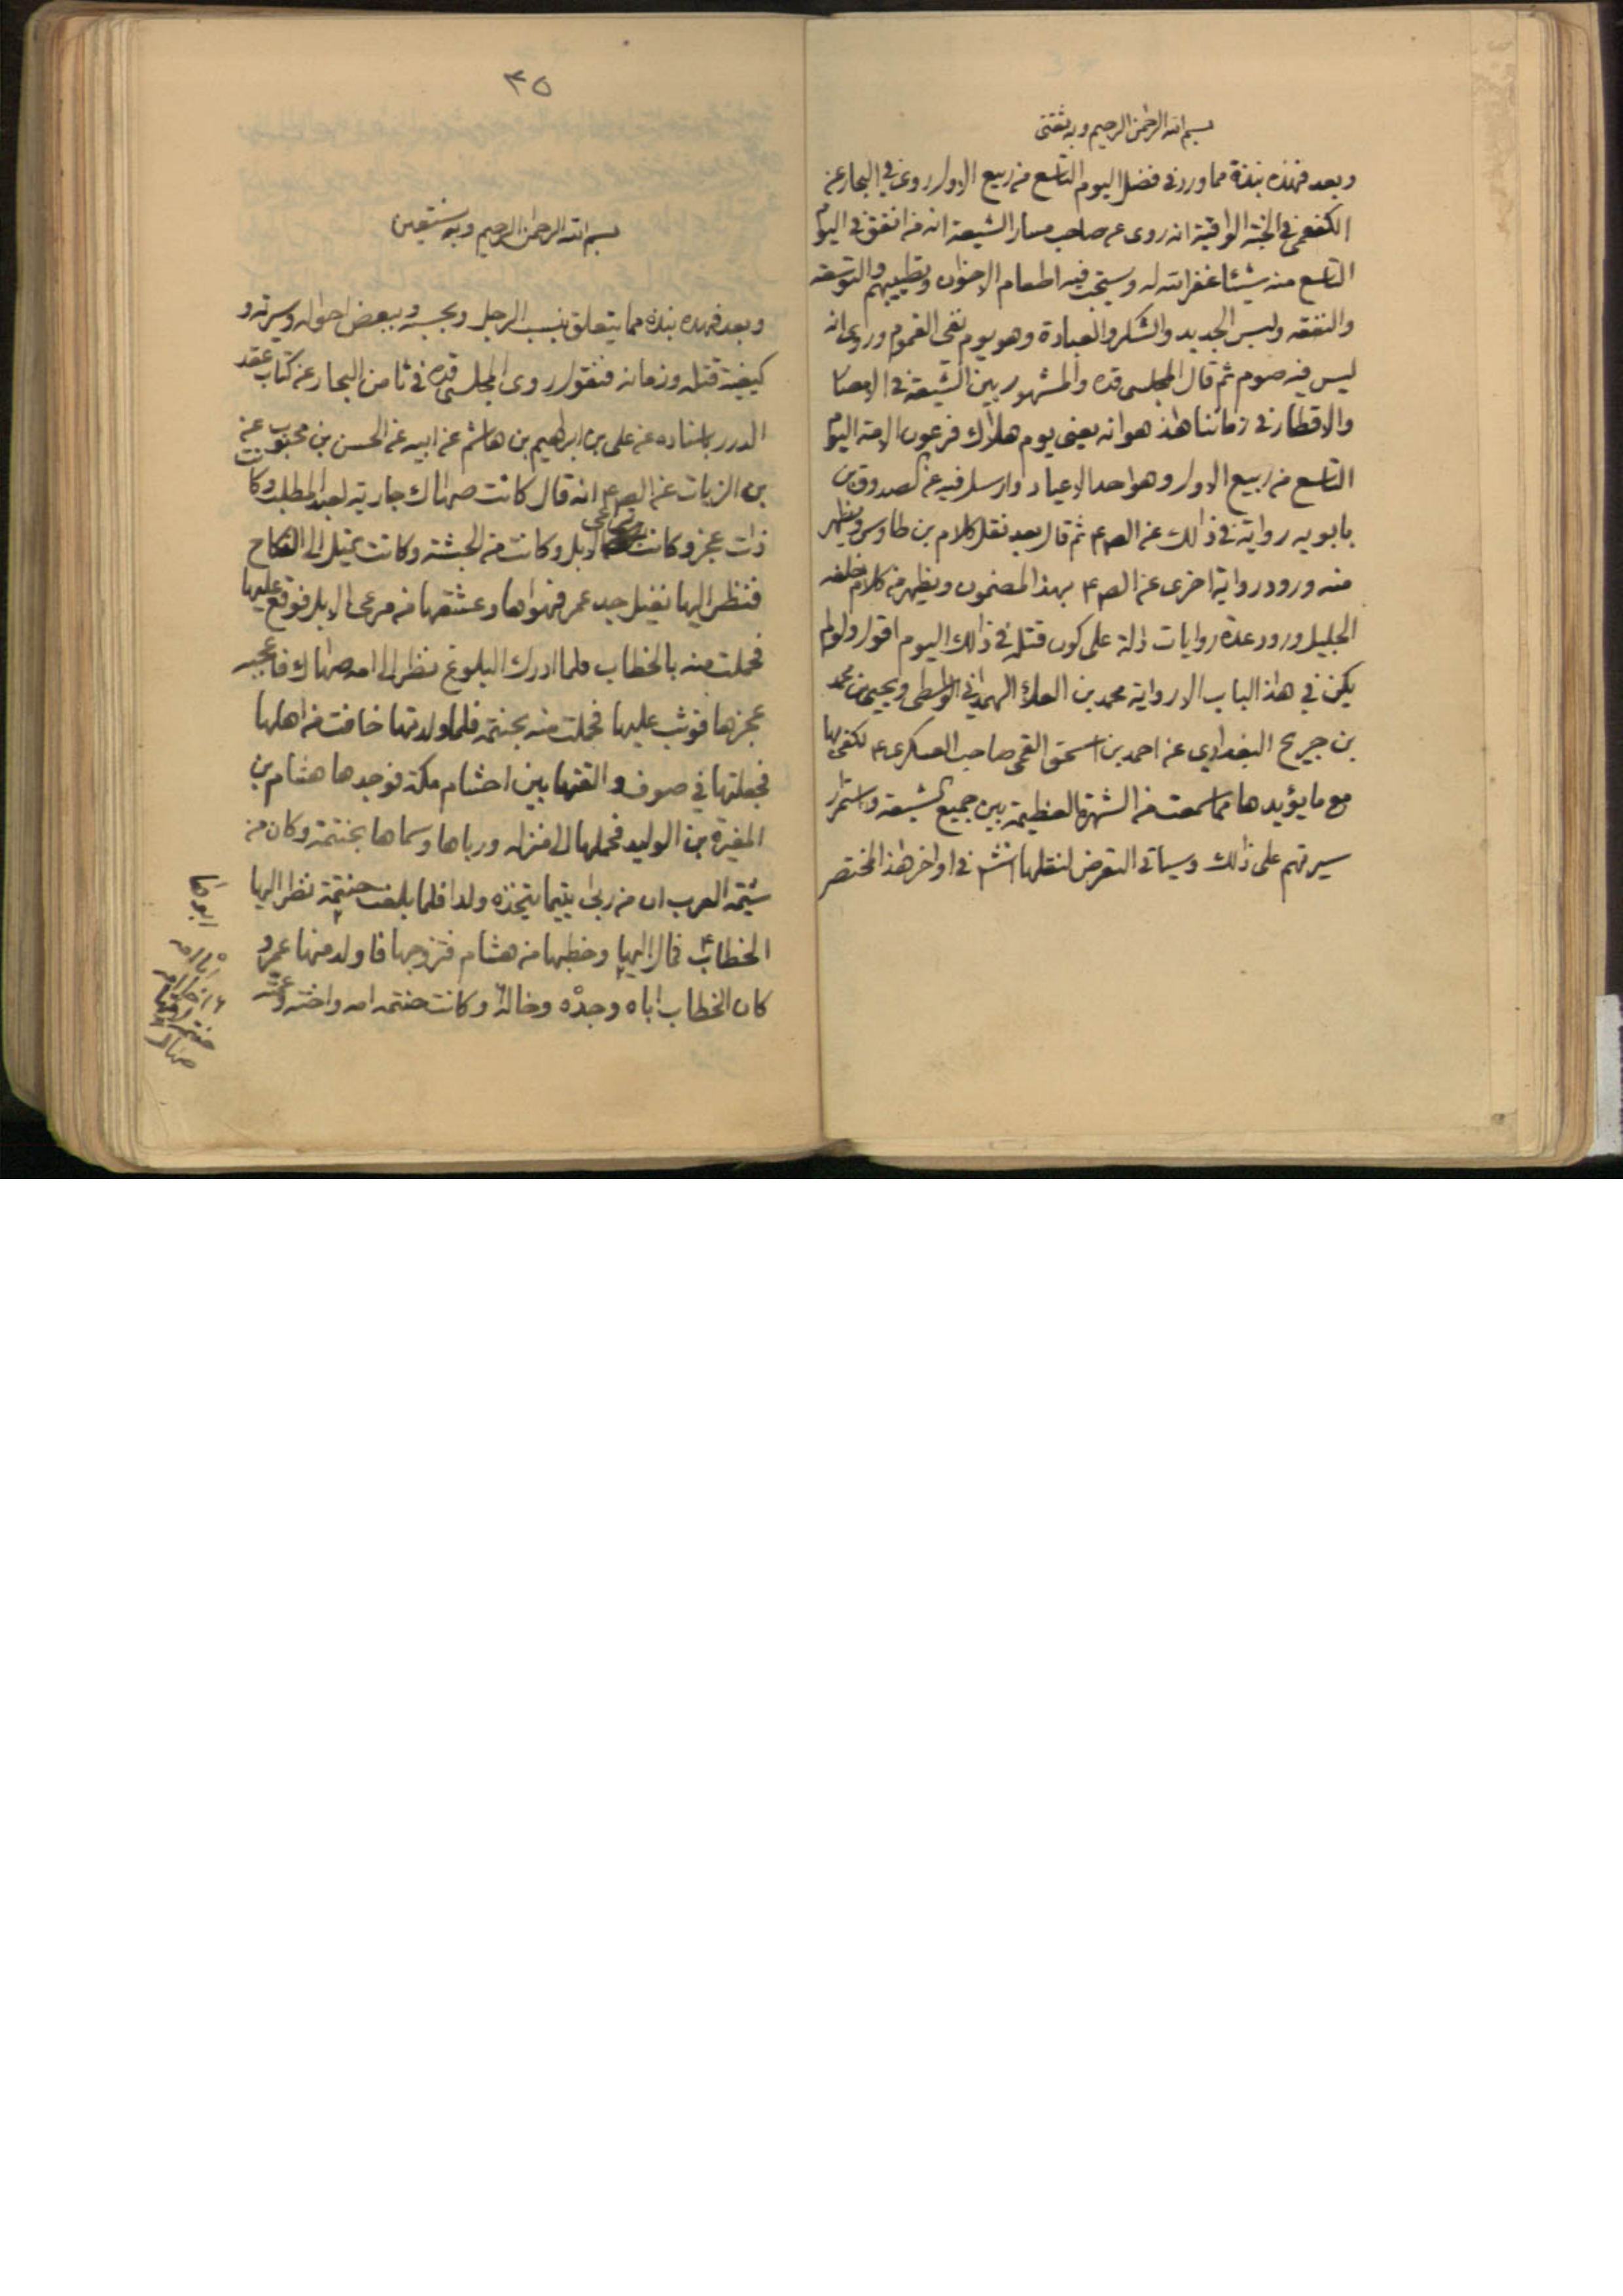 بسم الله الرحمن الرحيم وبه ثقتي
وبعد فهذه نبذة مما ورد في فضل اليوم التاسع من ربيع الاول روى في البحار عن
الكفعمي في الجنة الواقية انه روى عن صاحب مسار الشيعة انه من انفق في اليوم
التاسع منه شيئا غفر الله له ويستحب فيه اطعام الاخوان وتطييبهم والتوسعه
والنفقه ولبس الجديد والشكر والعبادة وهو يوم نفى الغموم وروى انه
ليس فيه صوم ثم قال المجلسي قده والمشهور بين الشيعة في الامصار
والاقطار في زماننا هذا هو انه يعني يوم هلاك فرعون الامة اليوم
التاسع من ربيع الاول وهو احد الاعياد وارسل فيه عن الصدوق بن
بابويه رواية في ذالك عن الص ع ثم قال بعد نقل كلام بن طاوس ويظهر
منه ورود رواية اخرى عن الص ع بهذا المضمون ويظهر من كلام خلفه
الجليل ورود عدة روايات دلة على كون قتله في ذالك اليوم اقول ولو لم
يكن في هذا الباب الا رواية محمد بن العلاء الهمداني الواسطى ويحيى بن محمد
بن جريح البغدادي عن احمد بن اسحق القمي صاحب العسكرى ع لكفى بها
مع ما يؤيدها مما سمعت من الشهرة العظيمة بين جميع الشيعة واستمرار
سيرتهم على ذالك وسياتي التعرض لنقلها انشم في اواخر هذا المختصر
٣٥
بسم الله الرحمن الرحيم وبه نستعين
وبعد فهذه نبذة مما يتعلق بنسب الرجل وبحسبه وببعض احواله وسيرته و
كيفية قتله وزمانه فنقول روى المجلسي قده في ثامن البحار عن كتاب عقد
الدرر باسناده عن على بن ابراهيم بن هاشم عن ابيه عن الحسن بن محبوب عن
بن الزيات عن الص ع انه قال كانت صهاك جارية لعبد المطلب وكانت
ذات عجز وكانت ترعى الابل وكانت من الحبشة وكانت تميل الى النكاح
فنظر اليها نفيل جد عمر فهواها وعشقها من مرعى الابل فوقع عليها
فحملت منه بالخطاب فلما ادرك البلوغ نظر الى امه صهاك فاعجبه
عجزها فوثب عليها فحملت منه بحنتمة فلما ولدتها خافت من اهلها
فجعلتها في صوف والقتها بين احشام مكة فوجدها هشام بن
المغيرة بن الوليد فحملها الى منزله ورباها وسماها بحنتمة وكان من
شيمة العرب ان من ربى يتيما يتخذه ولدا فلما بلغت حنتمة نظر اليها
الخطاب فمال اليها وخطبها من هشام فتزوجها فاولد منها عمر و
كان الخطاب اباه وجده وخاله وكانت حنتمه امه واخته وعمته